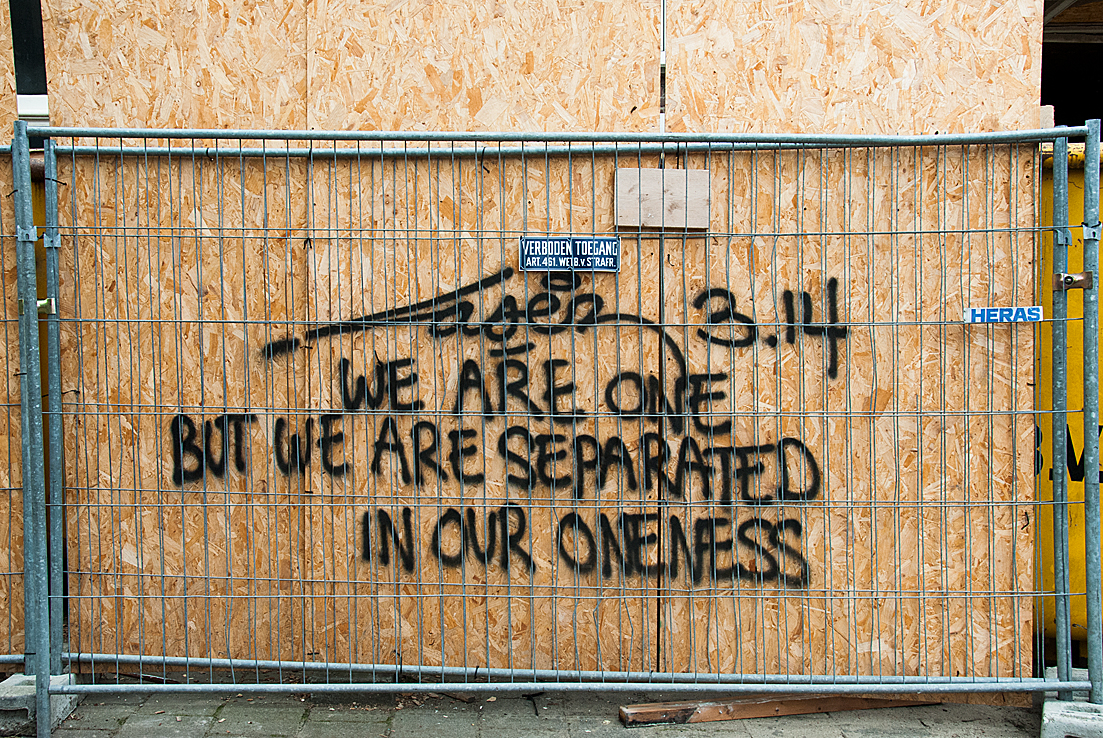 VERBODEN TOEGANG
ART. 461. WETB. v. STRAFR.
3.14
HERAS
WE ARE ONE
BUT WE ARE SEPARATED
IN OUR ONENESS